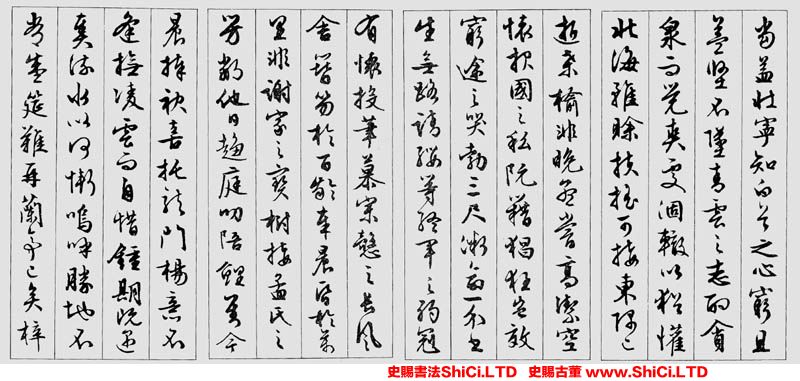 當益壯寧知白首之心窮且
益堅不墜青雲之志酌貪
泉而覺爽處涸轍以猶懽
北海雖賒扶搖可接東隅已
逝桑榆非晚孟嘗高潔空
懷報國之私阮籍猖狂豈效
窮途之哭勃三尺微命一介書
生無路請纓等終軍之弱冠
有懷投筆慕宗愨之長風
舍簪笏於百齡奉晨昏於萬
里非謝家之寶樹接孟氏之
芳鄰他日趨庭叨陪鯉對今
晨捧袂喜托龍門楊意不
逢撫凌雲而自惜鍾期既遇
奏流水以何慚嗚呼勝地不
常盛筵難再蘭亭已矣梓
史賜書法ShiCi.LTD 史賜古董 www.ShiCi.LTD